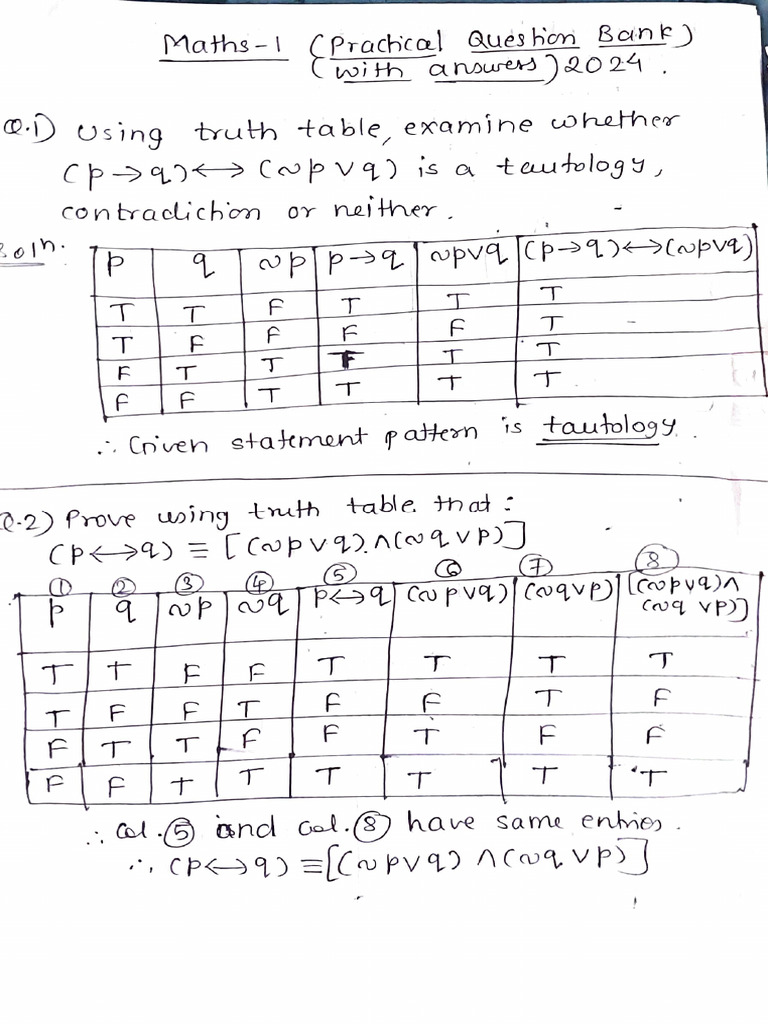 Maths-1 (Practical Question Bank)
(with answers) 2024.
Q.1) Using truth table, examine whether
(p→q)↔(~p∨q) is a tautology,
contradiction or neither.
Soln.
p q ~p p→q ~p∨q (p→q)↔(~p∨q)
T T F T T T
T F F F F T
F T T T T T
F F T T T T
∴ Given statement pattern is tautology.
Q.2) Prove using truth table that:
(p↔q) ≡ [(~p∨q)∧(~q∨p)]
① ② ③ ④ ⑤ ⑥ ⑦ ⑧
p q ~p ~q p↔q (~p∨q) (~q∨p) [(~p∨q)∧
(~q∨p)]
T T F F T T T T
T F F T F F T F
F T T F F T F F
F F T T T T T T
∴ Col.⑤ and Col.⑧ have same entries.
∴ (p↔q) ≡ [(~p∨q)∧(~q∨p)]